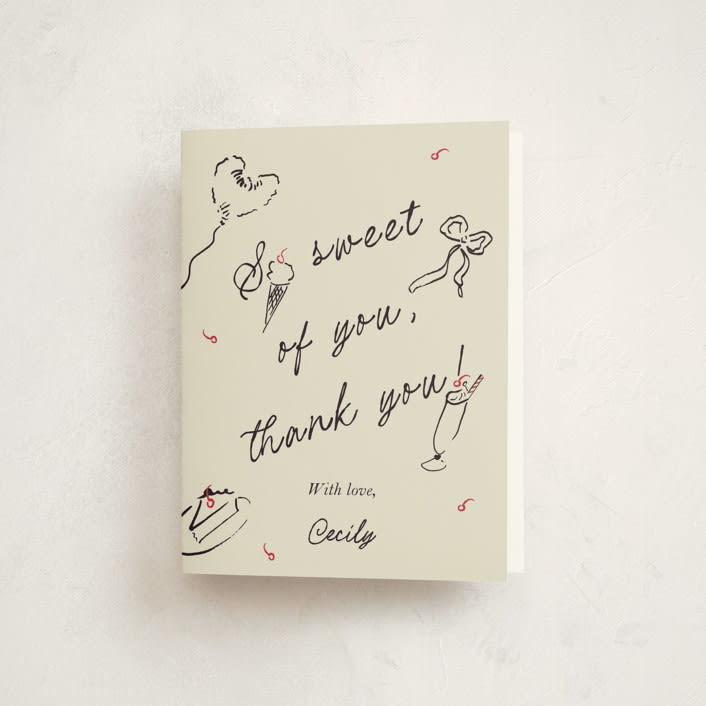 So sweet
of you,
thank you!
With love,
Cecily